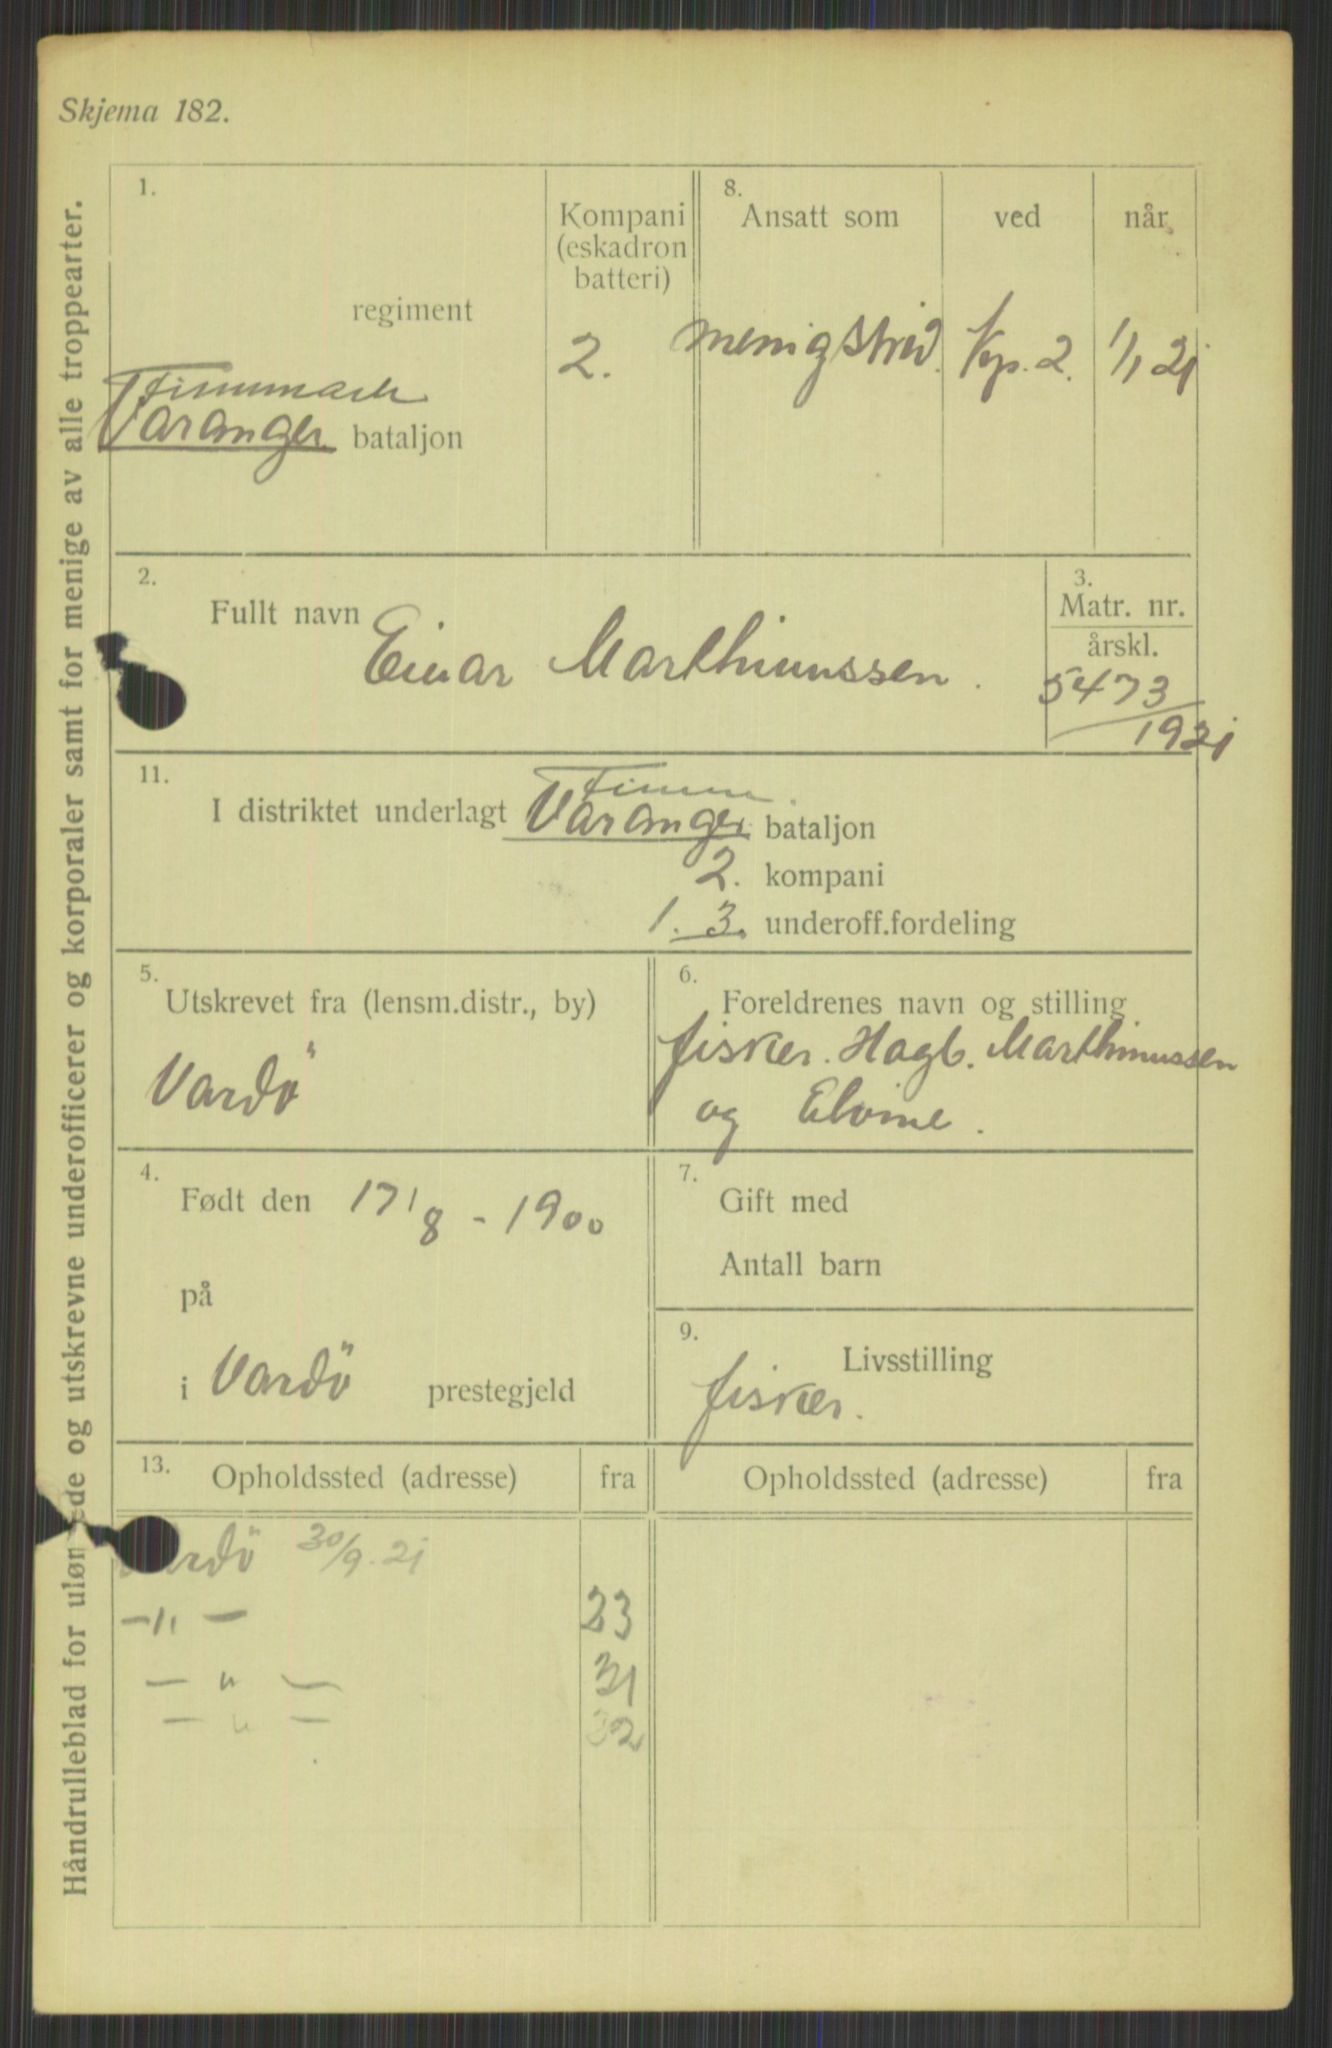 Skjema 182.
Håndrulleblad for uløn ede og utskrevne underofficerer og korporaler samt for menige av alle troppearter.
1.
regiment
Finnmark
Varanger bataljon
Kompani
(eskadron
batteri)
2.
8.
Ansatt som
ved
når
menig strid.
Kp. 2.
1/1 21
2.
Fullt navn Einar Marthinussen.
3.
Matr. nr.
årskl.
5473
1921
11.
Finnm.
I distriktet underlagt Varanger bataljon
2. kompani
1. 3. underoff.fordeling
5.
Utskrevet fra (lensm.distr., by)
Vardö
6.
Foreldrenes navn og stilling
fisker. Hagb. Marthinussen
og Elvine.
4.
Født den 17/8 - 1900
på
i Vardö prestegjeld
7.
Gift med
Antall barn
9.
Livsstilling
fisker.
13.
Opholdssted (adresse) fra
Opholdssted (adresse) fra
Vardö 30/9. 21
—"— 23
— " — 31
— " — 32